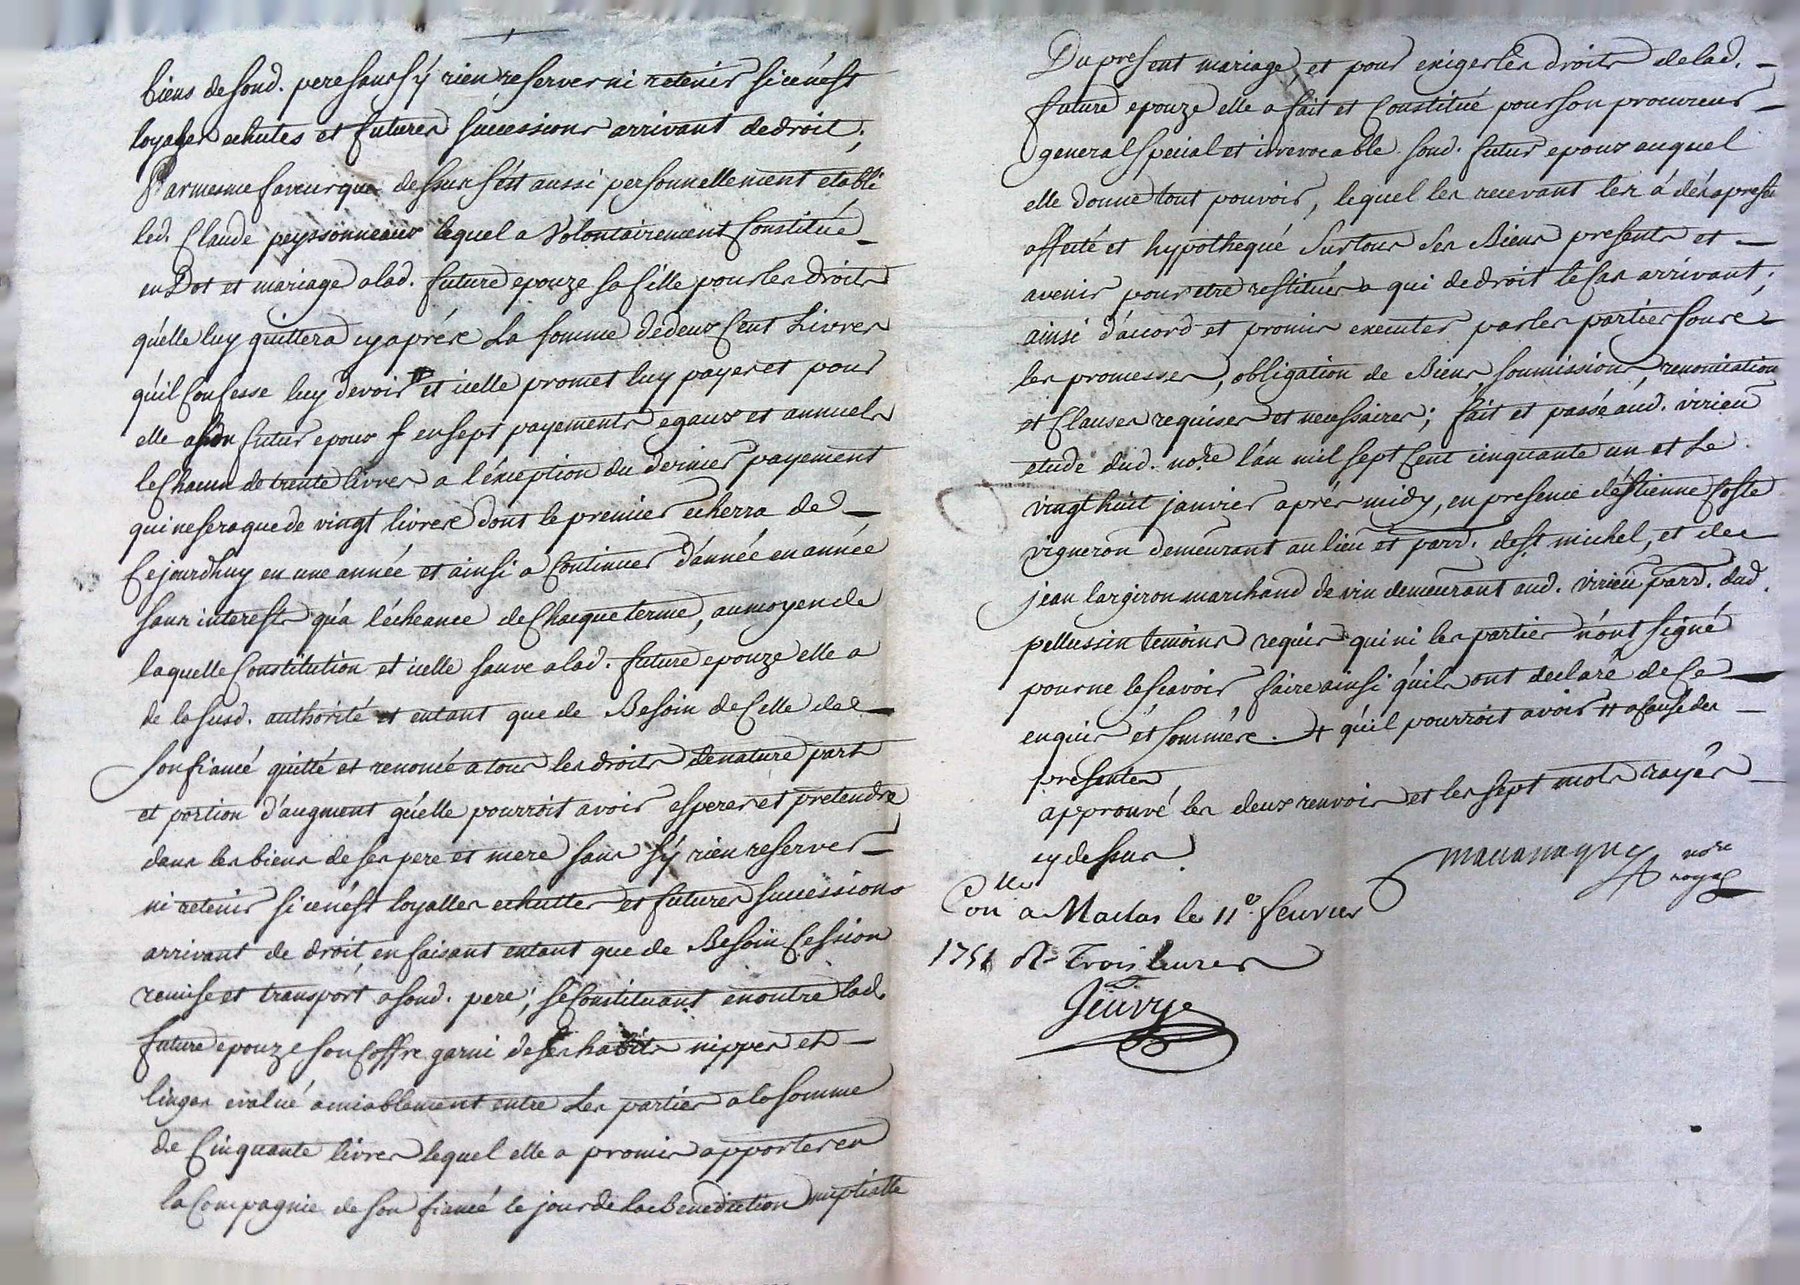 biens de sond. pere sans s'y rien reserver ni retenir si ce n'est
loyalles echutes et futures successions arrivant de droit;
Par mesme faveur que dessus s'est aussi personnellement etabli
led. Claude peyssonneaux lequel a volontairement Constitué
en Dot et mariage a lad. future epouze sa fille pour les droits
qu'elle luy quittera cy aprés La somme de deux Cent Livres
qu'il Confesse luy devoir et icelle promet luy payer et pour
elle a son futur epoux en sept payements egaux et annuels
le Chacun de trente livres a l'éxeption du dernier payement
qui ne sera que de vingt livres dont le premier echerra de
Cejourdhuy en une année et ainsi a Continuer d'année en année
sans interests qu'a l'écheance de Chacque terme, au moyen de
laquelle Constitution et icelle sauve a lad. future epouze elle a
de la susd. authorité et entant que de Besoin de Celle de
son fiancé quitté et renoncé a tous les droits de nature part
et portion d'augment qu'elle pourroit avoir esperer et pretendre
dans les biens de ses pere et mere sans s'y rien reserver
ni retenir si ce n'est loyalles echuttes et futures successions
arrivant de droit, en faisant entant que de Besoin Cession
remise et transport a sond. pere; se Constituant en outre lad.
future epouze son Coffre garni de ses habits nippes et
linges evalué amiablement entre Les parties a la somme
de Cinquante livres lequel elle a promis apporter en
la Compagnie de son fiancé le jour de la Benediction nuptialle
Du present mariage, et pour exiger les droits de lad.
future epouze elle a fait et Constitué pour son procureur
general special et irrevocable sond. futur epoux auquel
elle donne tout pouvoir, lequel les recevant les a dés a present
affecté et hypothequé sur tous ses Biens presents et
avenir pour etre restitués a qui de droit le Cas arrivant;
ainsi d'accord et promis executer par les parties sous
les promesses, obligation de Biens, soumissions, renonciation
et Clauses requises et necessaires; fait et passé aud. virieu
etude dud. nore. l'an mil sept Cent cinquante un et Le
vingt huit janvier aprés midy, en presence d'éstienne Coste
vigneron demeurant au lieu et parr. de st michel, et de
jean largiron marchand de vin demeurant aud. virieu parr. dud.
pellussin temoins requis qui ni les parties n'ont signé
pour ne le sçavoir faire ainsi qu'ils ont declaré de Ce
enquis et sommés. # qu'il pourroit avoir # a Cause des
presentes
approuvé les deux renvois et les sept mots rayés
cy dessus
nore
royal
Conllé a Maclas le 11e. fevrier
1751 R Trois livres